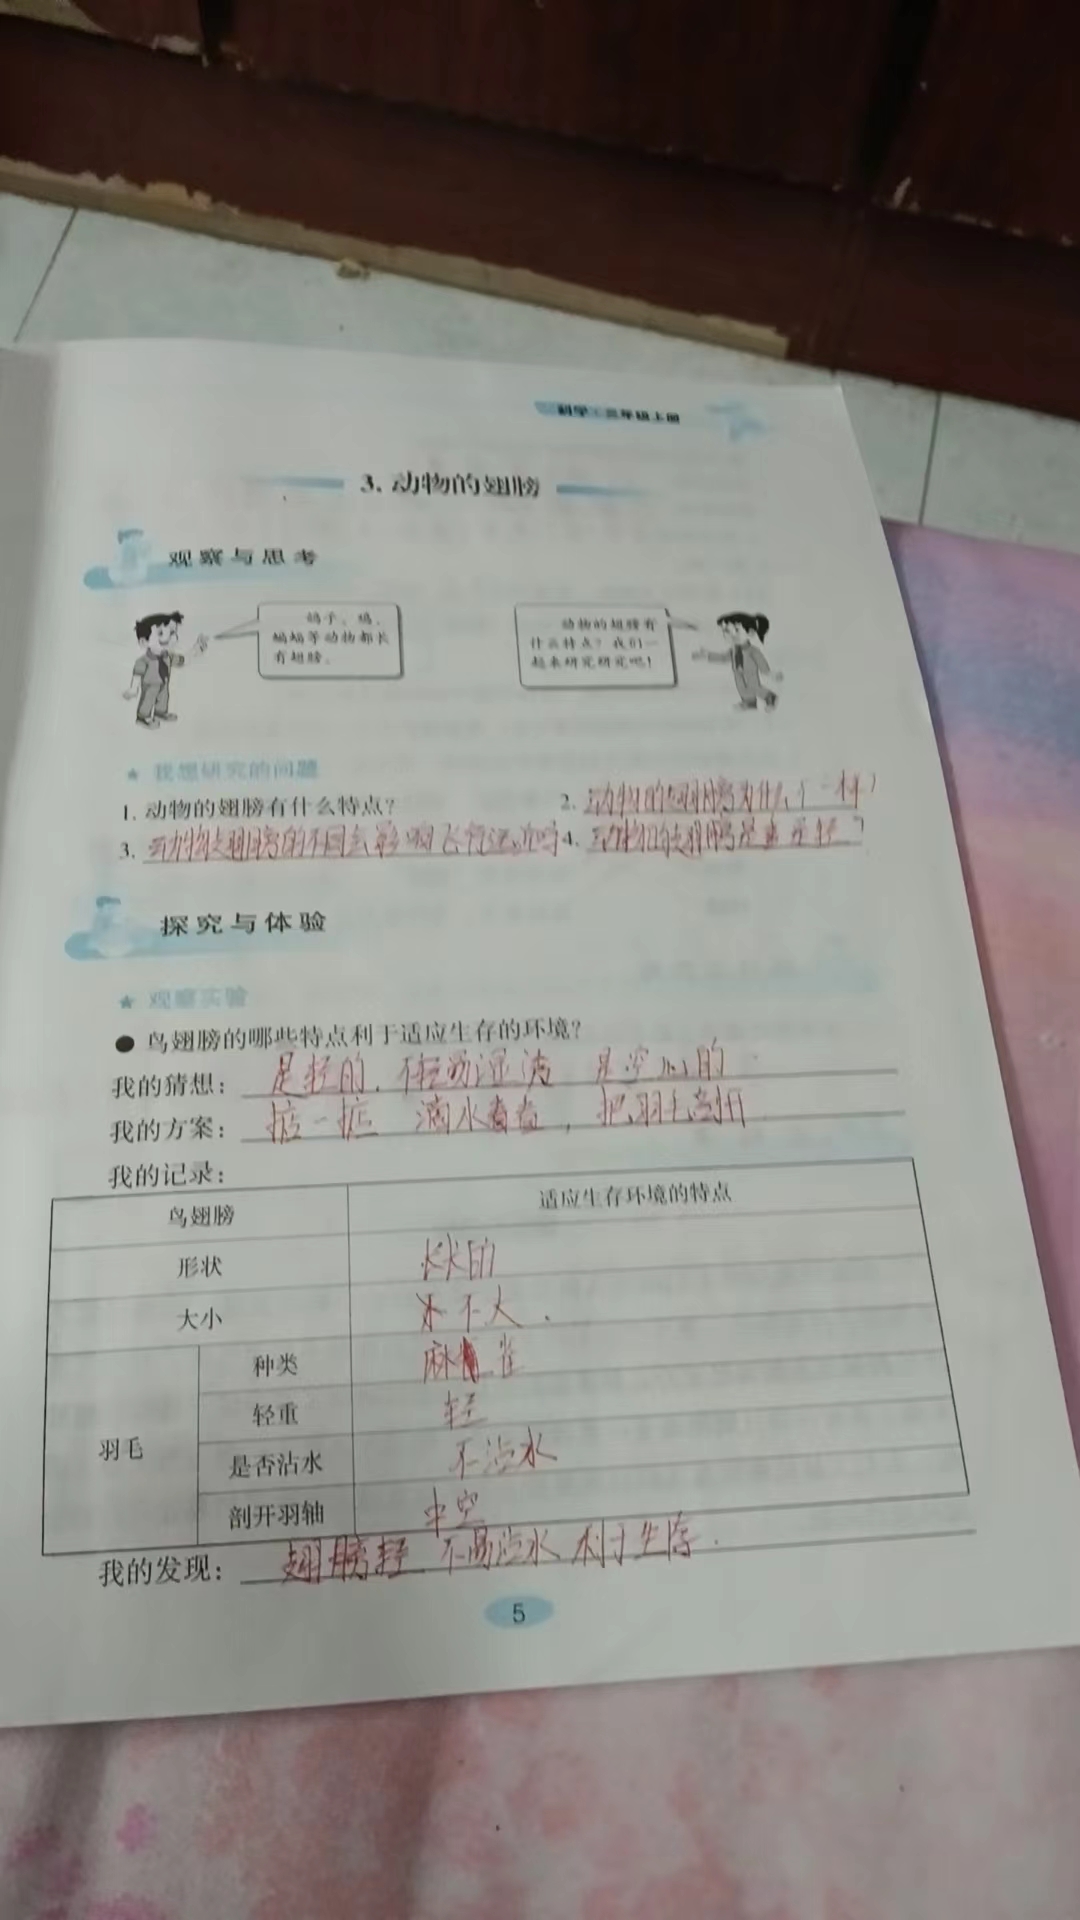 科学·三年级上册
3. 动物的翅膀
观察与思考
鸽子、鸡、
蝙蝠等动物都长
有翅膀。
动物的翅膀有
什么特点？我们一
起来研究研究吧！
★ 我想研究的问题
1. 动物的翅膀有什么特点？ 2. 动物的翅膀为什么不一样？
3. 动物翅膀的不同会影响飞行远近吗 4. 动物的翅膀是重是轻？
探究与体验
★ 观察实验
● 鸟翅膀的哪些特点利于适应生存的环境？
我的猜想： 是轻的，不轻易湿 是空心的
我的方案： 掂一掂 滴水看看，把羽毛剖开
我的记录：
鸟翅膀 适应生存环境的特点
形状 长长的
大小 不大.
羽毛
种类 麻雀
轻重 轻
是否沾水 不沾水
剖开羽轴 中空
我的发现： 翅膀轻 不易沾水 利于生存.
5